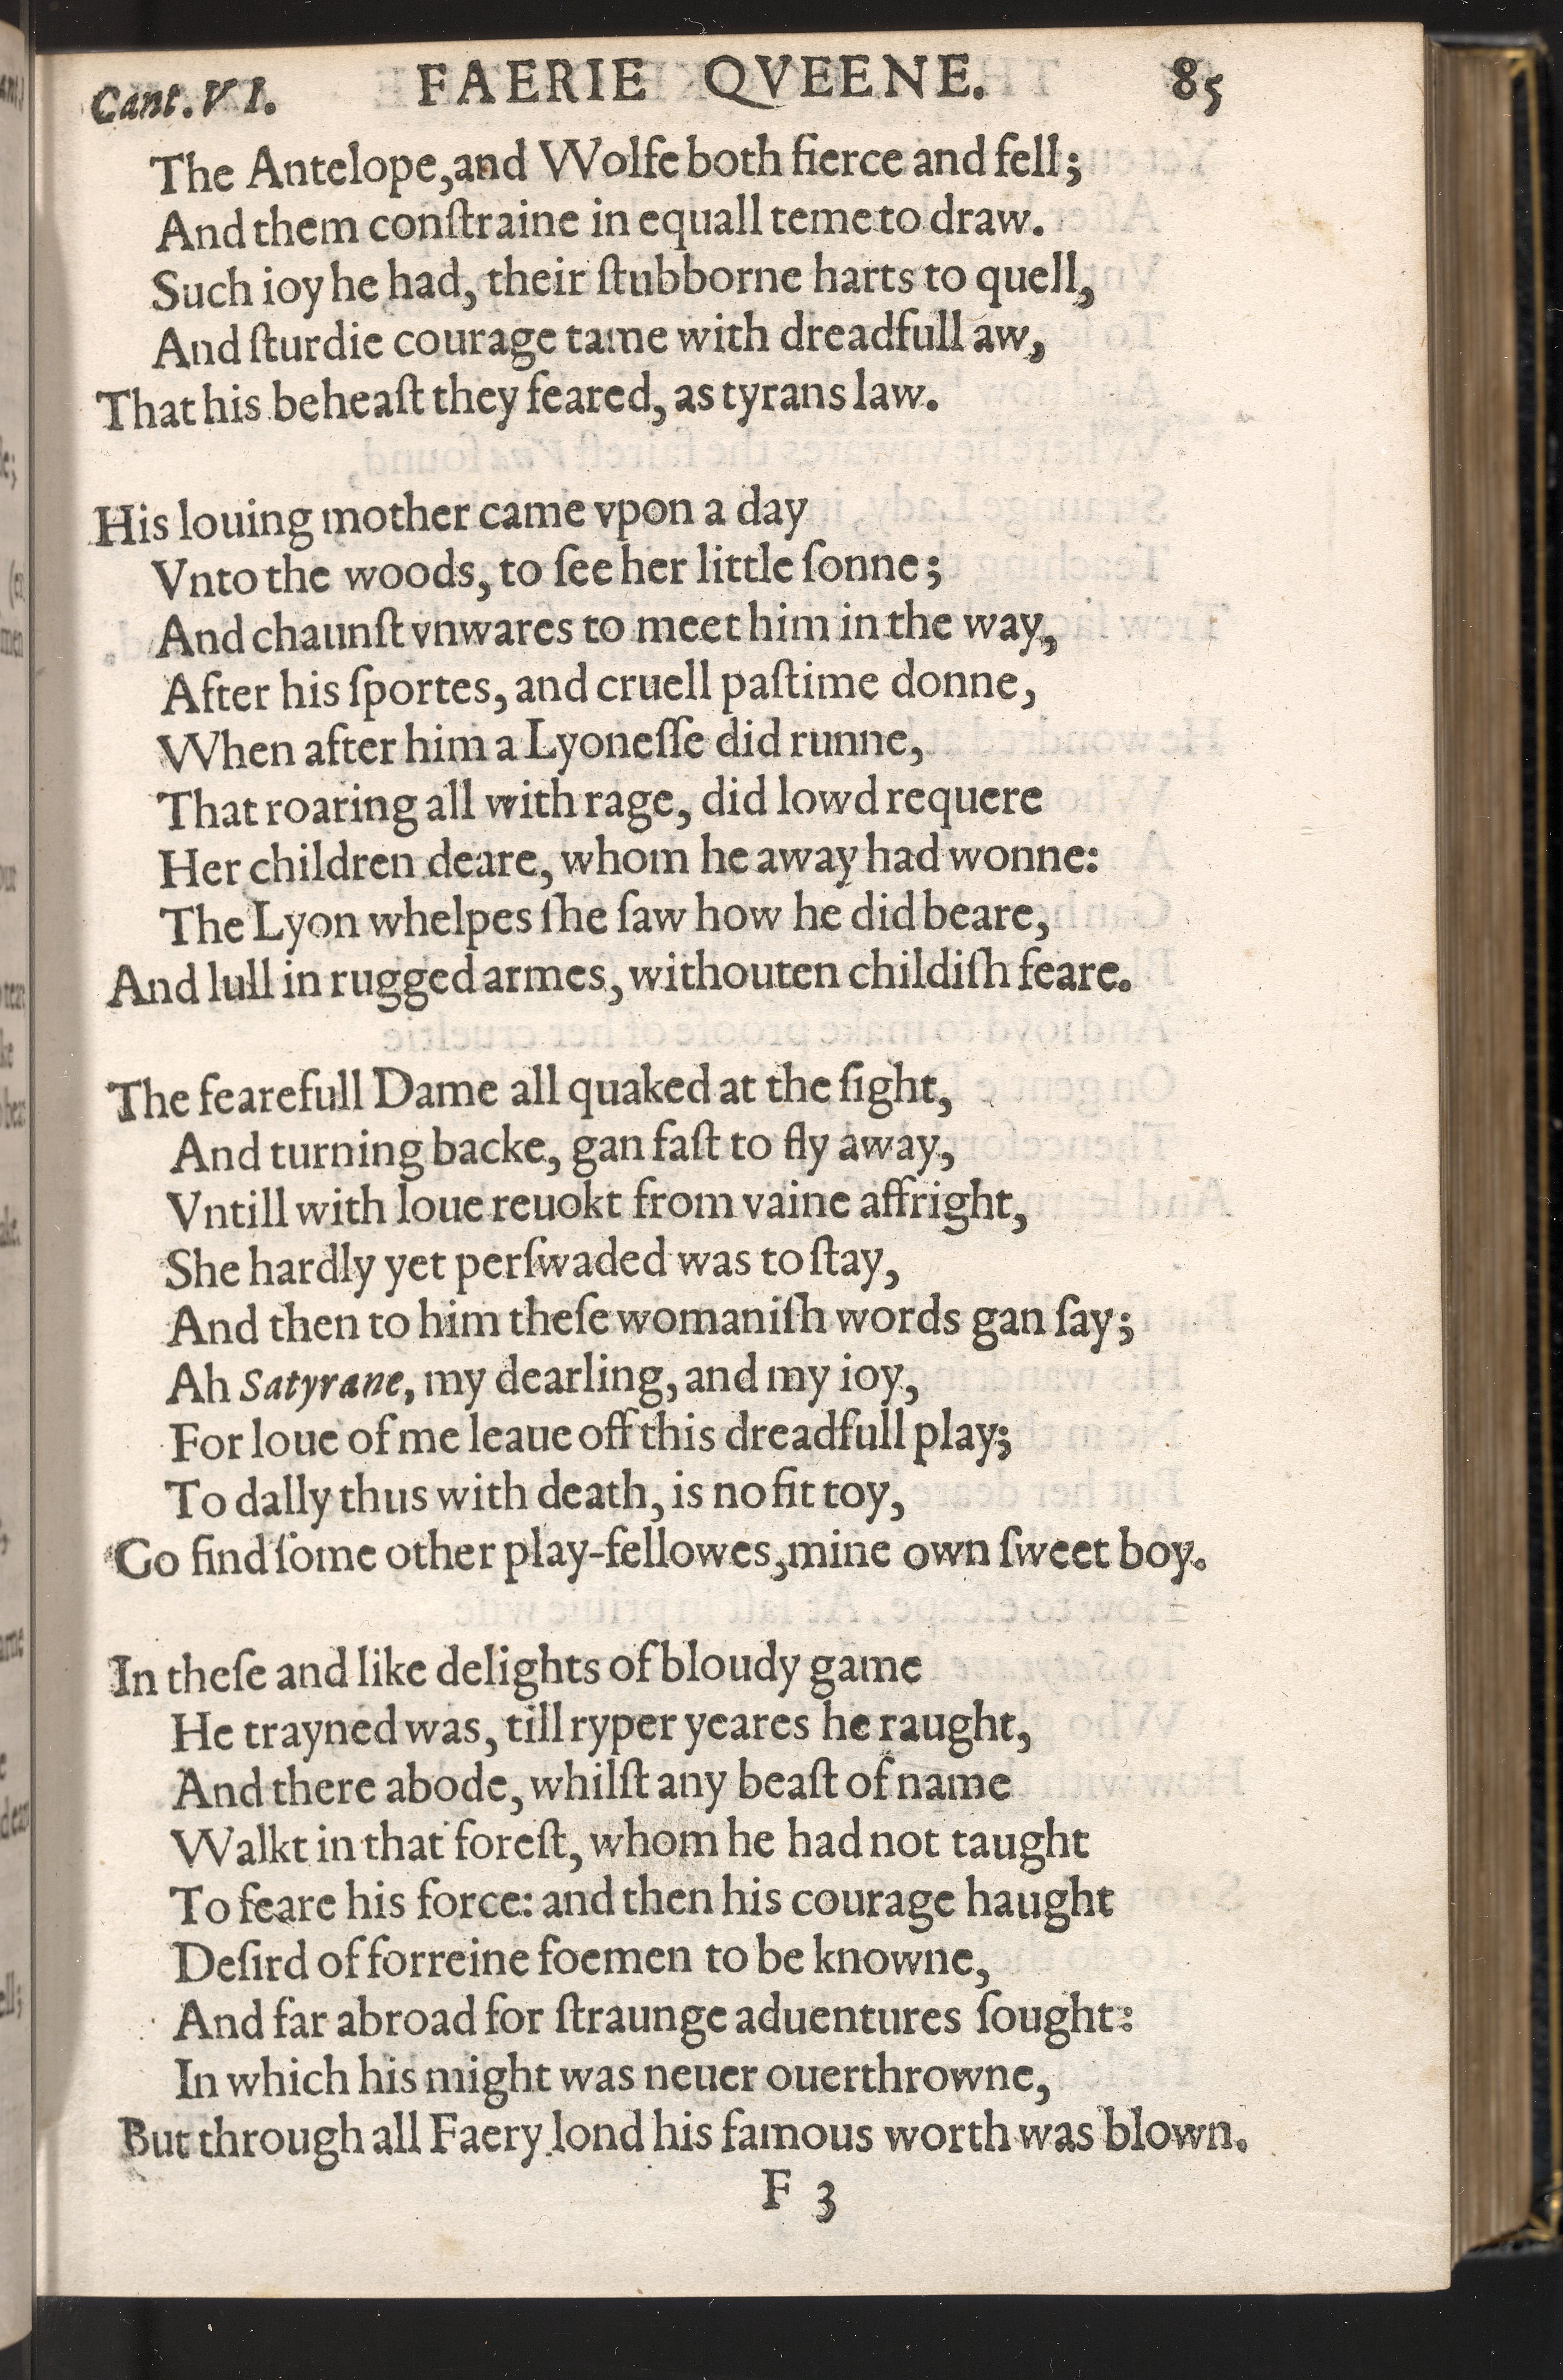 Cant. VI. FAERIE QVEENE. 85
The Antelope, and Wolfe both fierce and fell;
And them conſtraine in equall teme to draw.
Such ioy he had, their ſtubborne harts to quell,
And ſturdie courage tame with dreadfull aw,
That his beheaſt they feared, as tyrans law.
His louing mother came vpon a day
Vnto the woods, to ſee her little ſonne;
And chaunſt vnwares to meet him in the way,
After his ſportes, and cruell paſtime donne,
When after him a Lyoneſſe did runne,
That roaring all with rage, did lowd requere
Her children deare, whom he away had wonne:
The Lyon whelpes ſhe ſaw how he did beare,
And lull in rugged armes, withouten childiſh feare.
The fearefull Dame all quaked at the ſight,
And turning backe, gan faſt to fly away,
Vntill with loue reuokt from vaine affright,
She hardly yet perſwaded was to ſtay,
And then to him theſe womaniſh words gan ſay;
Ah Satyrane, my dearling, and my ioy,
For loue of me leaue off this dreadfull play;
To dally thus with death, is no fit toy,
Go find ſome other play-fellowes, mine own ſweet boy.
In theſe and like delights of bloudy game
He trayned was, till ryper yeares he raught,
And there abode, whilſt any beaſt of name
Walkt in that foreſt, whom he had not taught
To feare his force: and then his courage haught
Deſird of forreine foemen to be knowne,
And far abroad for ſtraunge aduentures ſought:
In which his might was neuer ouerthrowne,
But through all Faery lond his famous worth was blown.
F 3